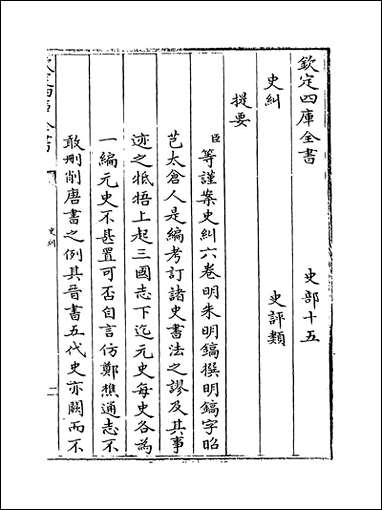 欽定四庫全書
史部十五
史糾
史評類
提要
臣等謹案史糾六卷明朱明鎬撰明鎬字昭
芑太倉人是編考訂諸史書法之謬及其事
迹之牴牾上起三國志下迄元史每史各為
一編元史不甚置可否自言仿鄭樵通志不
敢刪削唐書之例其晉書五代史亦闕而不
史糾